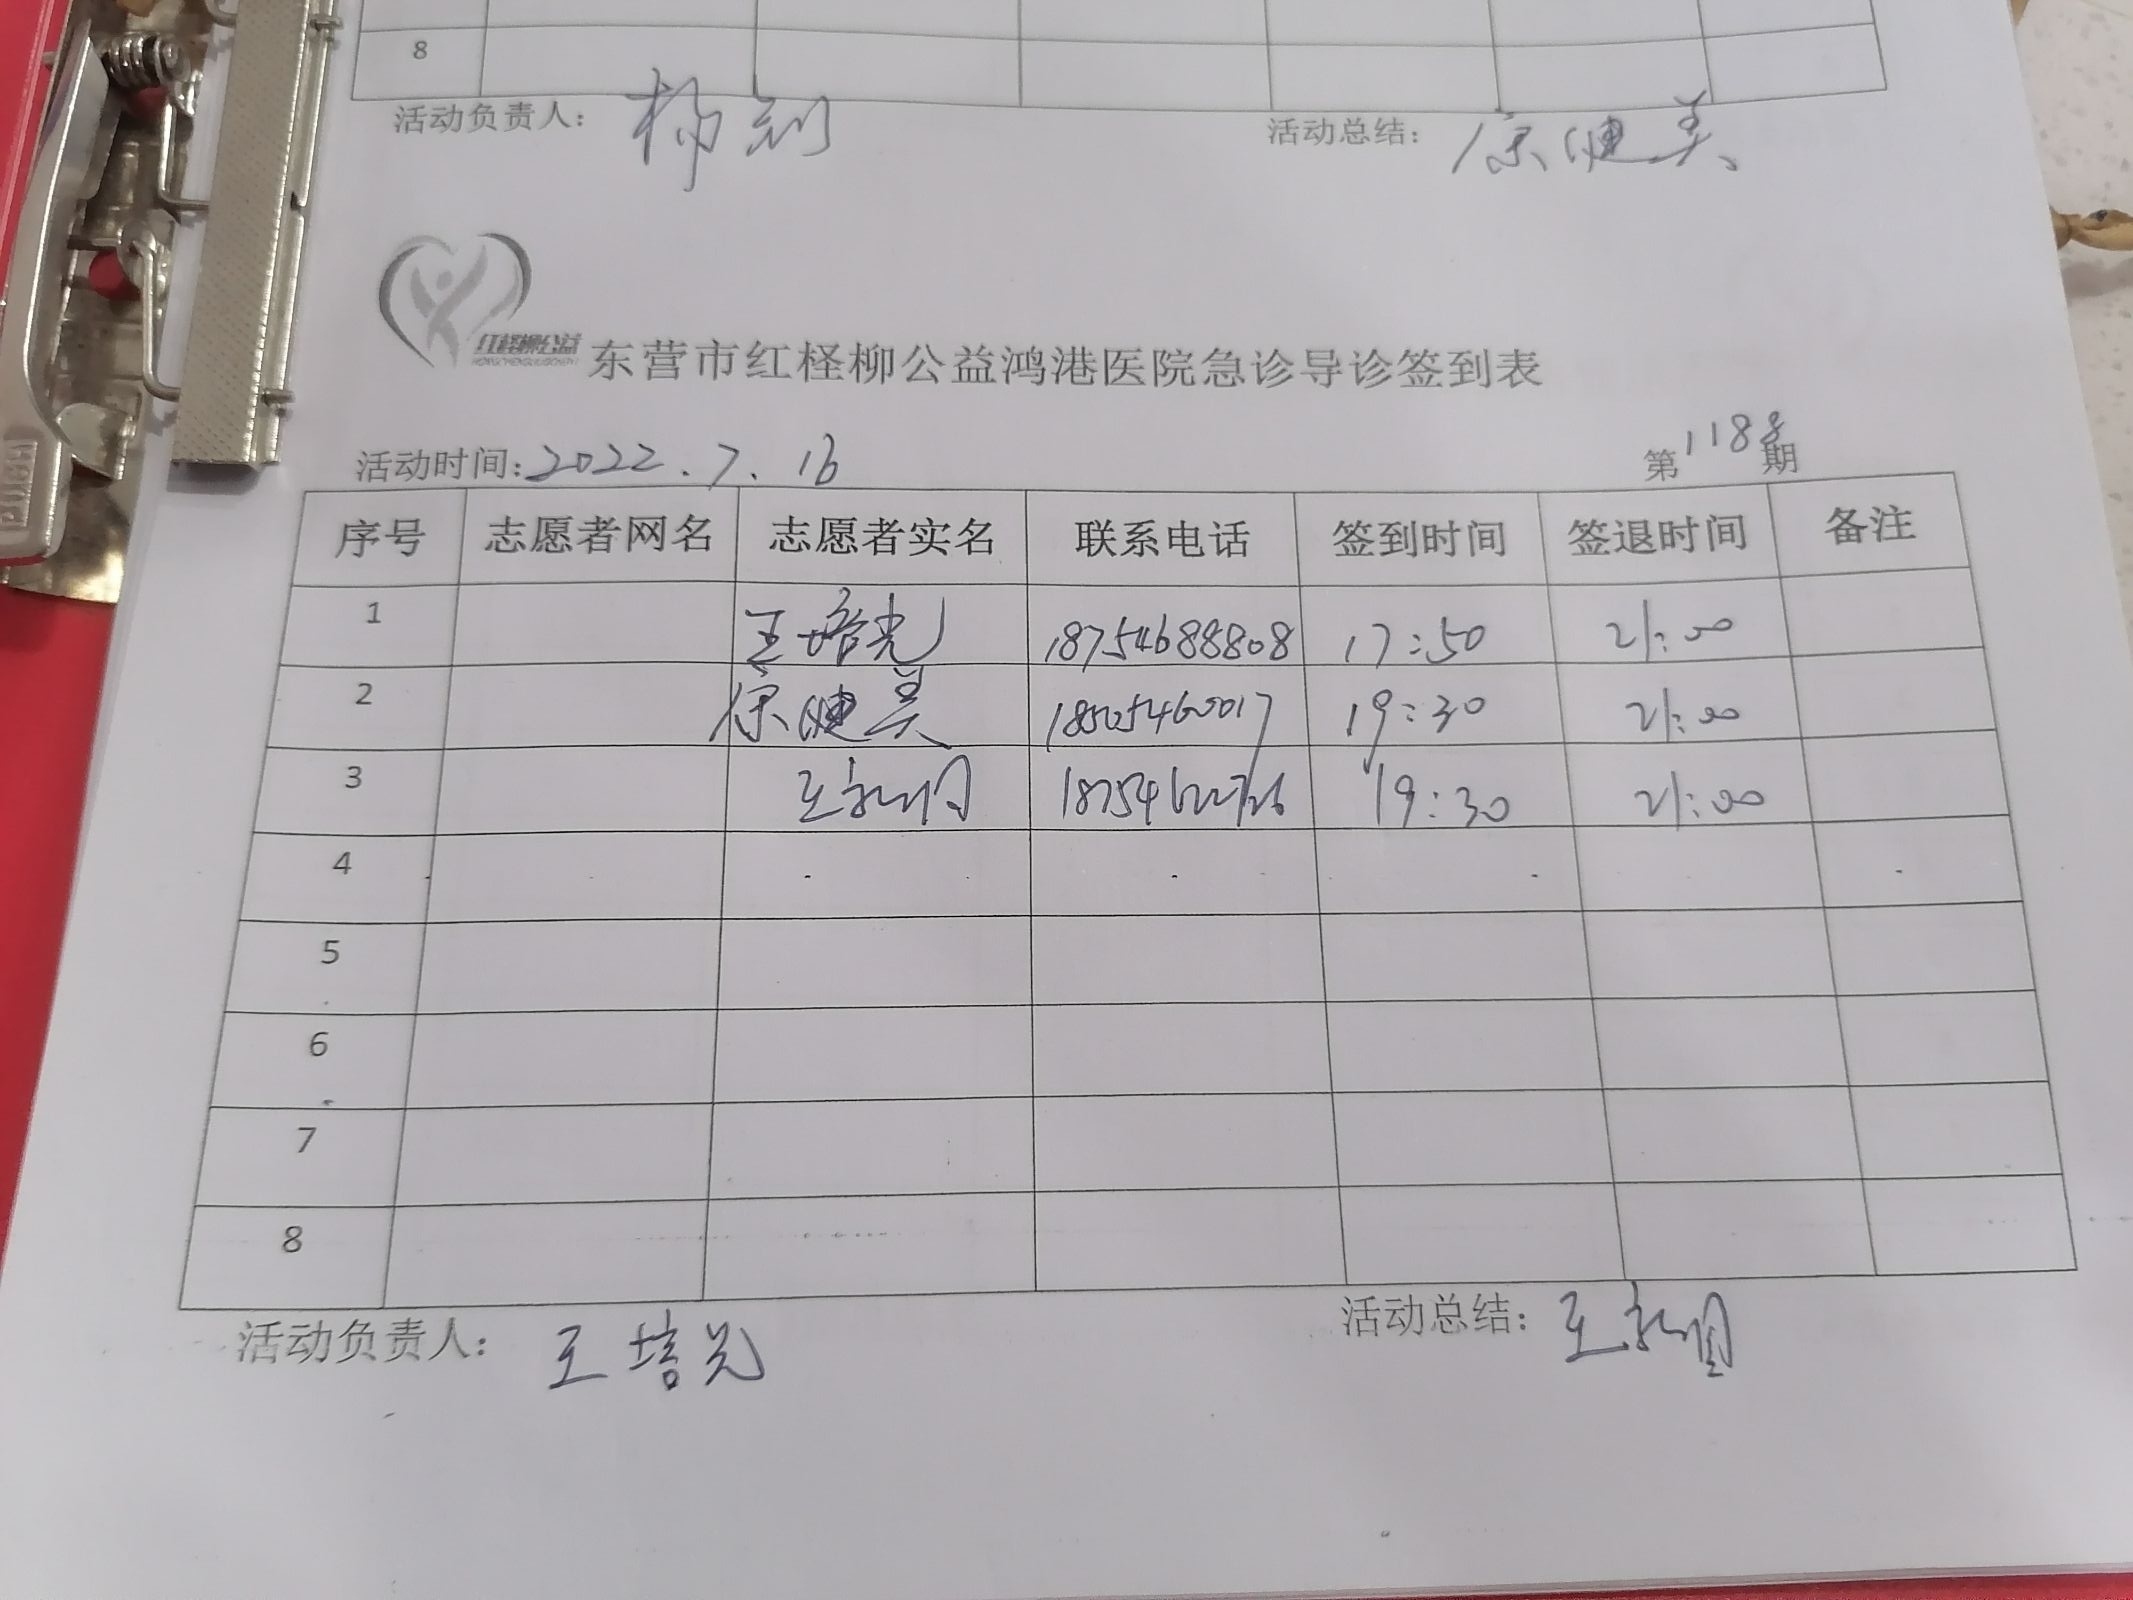 8
活动负责人： 活动总结：徐健美
红柽柳公益
东营市红柽柳公益鸿港医院急诊导诊签到表
活动时间：2022.7.16 第1188期
序号 志愿者网名 志愿者实名 联系电话 签到时间 签退时间 备注
1 王培光 18754688808 17:50 21:00
2 徐健美 18505460017 19:30 21:00
3 19:30 21:00
4
5
6
7
8
活动负责人：王培光 活动总结：